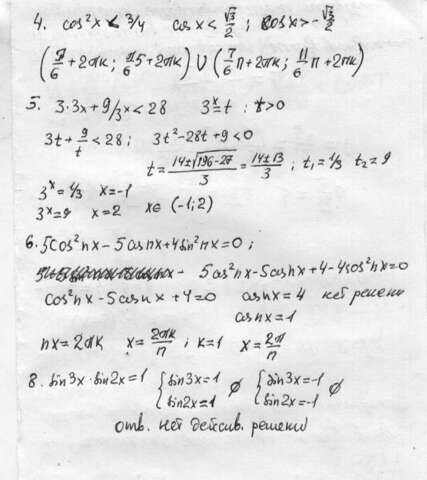 4. cos²x < 3/4 cosx < √3/2 ; cosx > -√3/2
(π/6 + 2πk ; π/6 5 + 2πk) ∪ (7/6 π + 2πk ; 11/6 π + 2πk)
5. 3·3x + 9/3x < 28 3^x = t : t > 0
3t + 9/t < 28 ; 3t² - 28t + 9 < 0
t = (14 ± √(196-27))/3 = (14 ± 13)/3 ; t₁ = 1/3 t₂ = 9
3^x = 1/3 x = -1
3^x = 9 x = 2 x ∈ (-1; 2)
6. 5cos²nx - 5cosnx + 4sin²nx = 0 ;
5cos²nx - 5cosnx + 4 - 4cos²nx = 0
cos²nx - 5cosnx + 4 = 0 cosnx = 4 нет решени
cosnx = 1
nx = 2πk x = 2πk/n ; k = 1 x = 2π/n
8. sin3x · sin2x = 1 { sin3x = 1 ∅ { sin3x = -1 ∅
sin2x = 1 sin2x = -1
отв. нет действ. решени